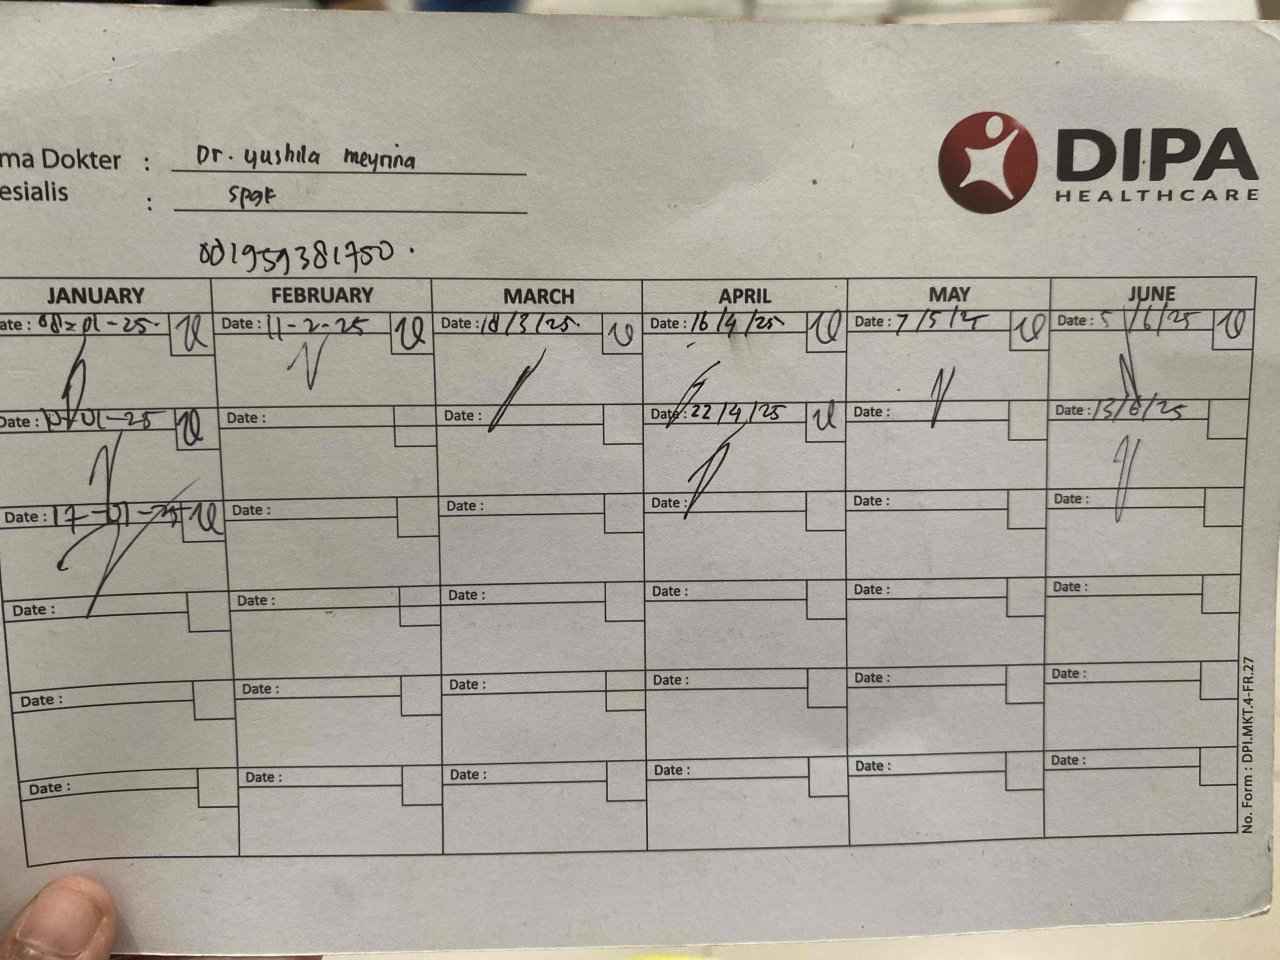 DIPA
HEALTHCARE
ma Dokter : Dr. yushila meynna
esialis : spgk
081959381750.
JANUARY FEBRUARY MARCH APRIL MAY JUNE
ate : 08-01-25. Date : 11-2-25 Date : 18/3/25. Date : 16/4/25 Date : 7/5/25 Date : 5/6/25
Date : 01-25 Date : Date : Date : 22/4/25 Date : Date : 13/6/25
Date : 17-01-25 Date : Date : Date : Date : Date :
Date : Date : Date : Date : Date : Date :
Date : Date : Date : Date : Date : Date :
Date : Date : Date : Date : Date : Date :
No. Form : DPI.MKT.4-FR.27